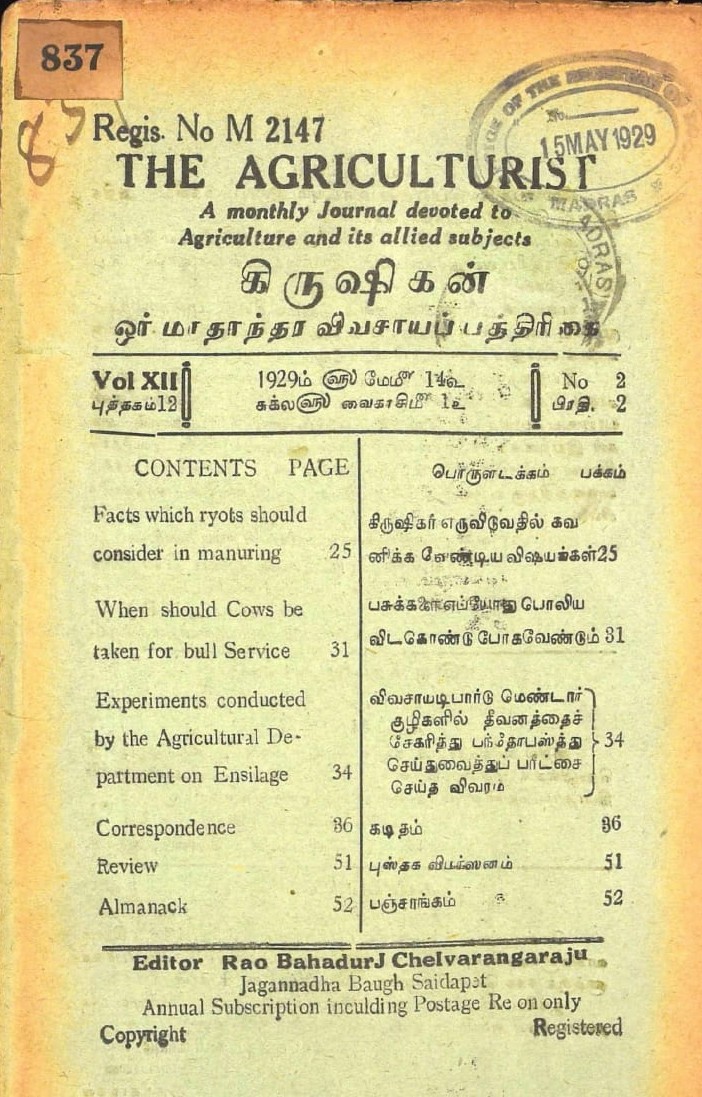 837
Regis. No M 2147
15 MAY 1929
MADRAS
THE AGRICULTURIST
A monthly Journal devoted to
Agriculture and its allied subjects
கிருஷிகன்
ஓர் மாதாந்தர விவசாயப் பத்திரிகை
Vol XII
புத்தகம்12
1929ம் ௵ மேமீ 14உ
சுக்ல௵ வைகாசிமீ 1உ
No 2
பிரதி. 2
CONTENTS PAGE
Facts which ryots should
consider in manuring 25
When should Cows be
taken for bull Service 31
Experiments conducted
by the Agricultural De-
partment on Ensilage 34
Correspondence 36
Review 51
Almanack 52
பொருளடக்கம் பக்கம்
கிருஷிகர் எருவிடுவதில் கவ
னிக்க வேண்டிய விஷயங்கள்25
பசுக்களை எப்போது பொலிய
விடகொண்டு போகவேண்டும் 31
விவசாயடிபார்டு மெண்டார்
குழிகளில் தீவனத்தைச்
சேகரித்து பந்தோபஸ்த்து 34
செய்துவைத்துப் பரீட்சை
செய்த விவரம்
கடிதம் 36
புஸ்தக விமர்ஸனம் 51
பஞ்சாங்கம் 52
Editor Rao Bahadur J Chelvarangaraju
Jagannadha Baugh Saidapet
Annual Subscription inculding Postage Re on only
Copyright Registered